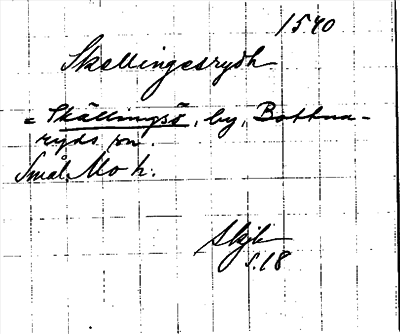 1540
Skellingesrydh
= Skällingsö, by, Bottna-
ryds sn.
Smål. Mo h.
Skjb
s. 18